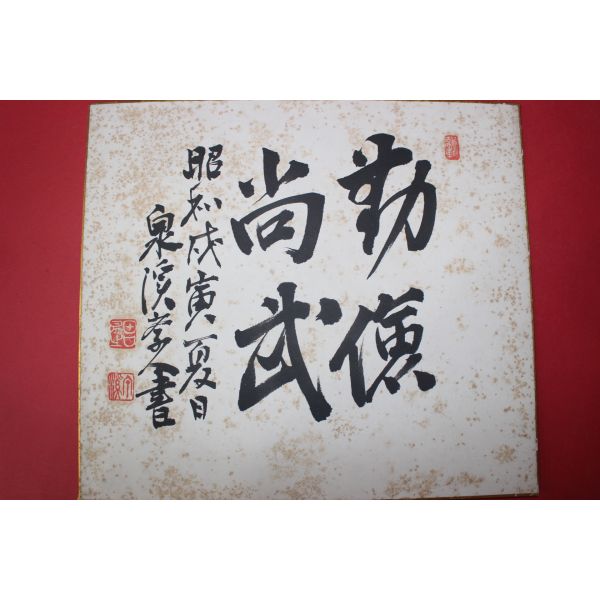 勤儉
尚武
昭和戊寅夏日
泉渓 書